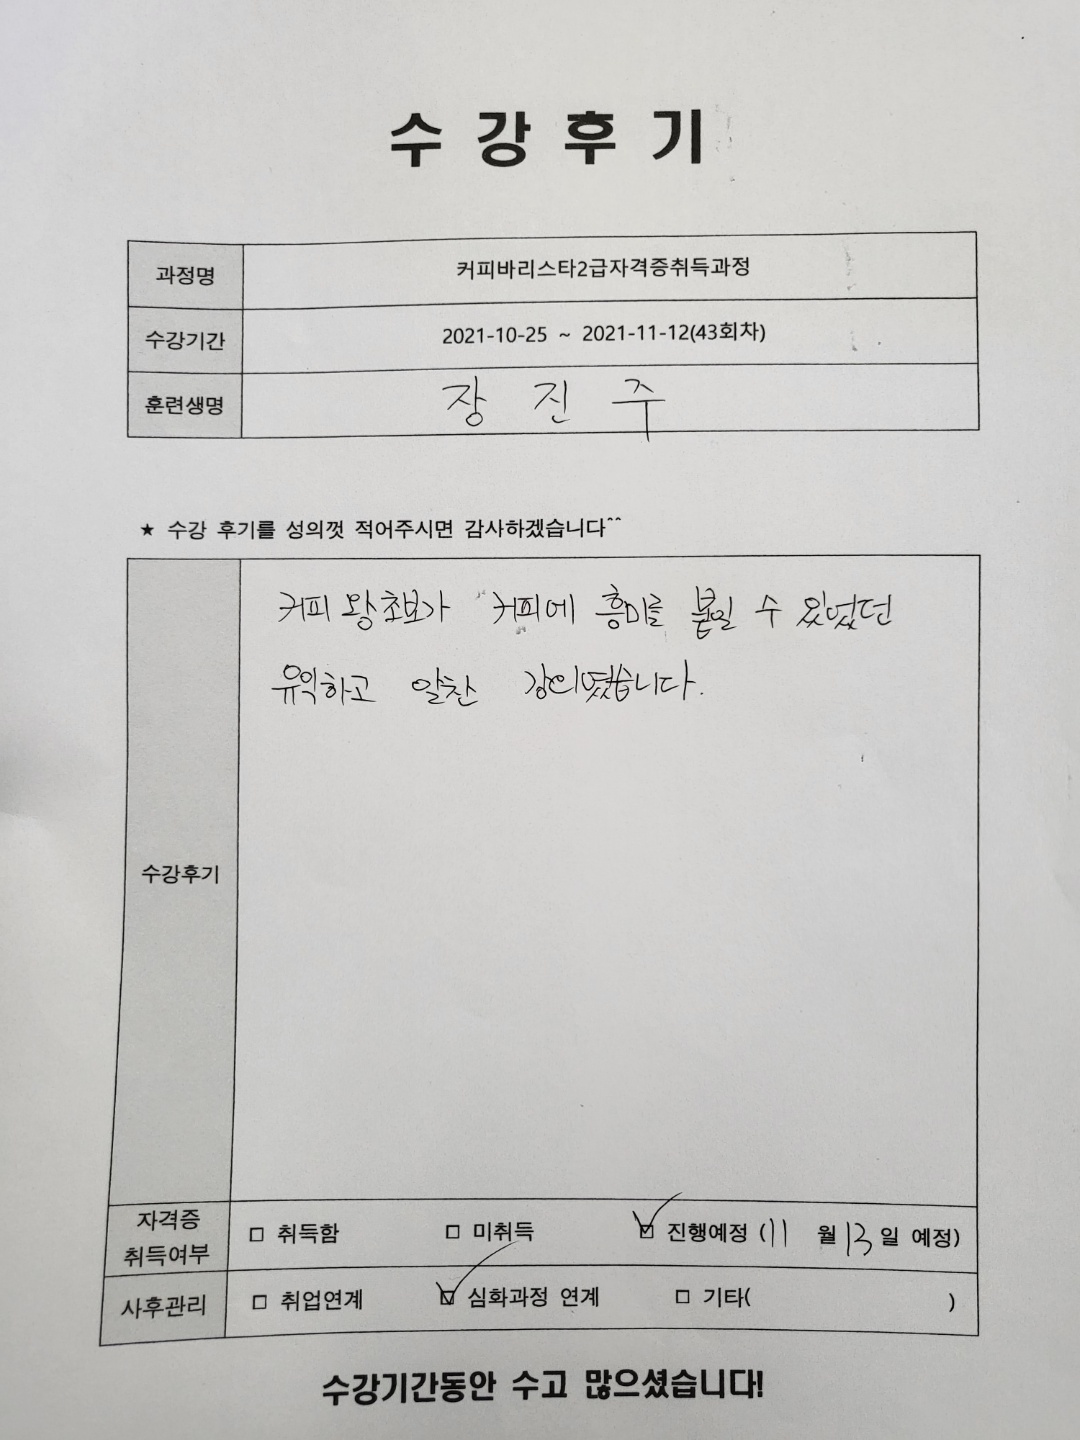 수 강 후 기
과정명 커피바리스타2급자격증취득과정
수강기간 2021-10-25 ~ 2021-11-12(43회차)
훈련생명 장 진 주
★ 수강 후기를 성의껏 적어주시면 감사하겠습니다^^
커피 왕초보가 커피에 흥미를 붙일 수 있었던
유익하고 알찬 강의였습니다.
수강후기
자격증
취득여부
□ 취득함 □ 미취득 ☑ 진행예정 (11 월 13 일 예정)
사후관리 □ 취업연계 ☑ 심화과정 연계 □ 기타( )
수강기간동안 수고 많으셨습니다!